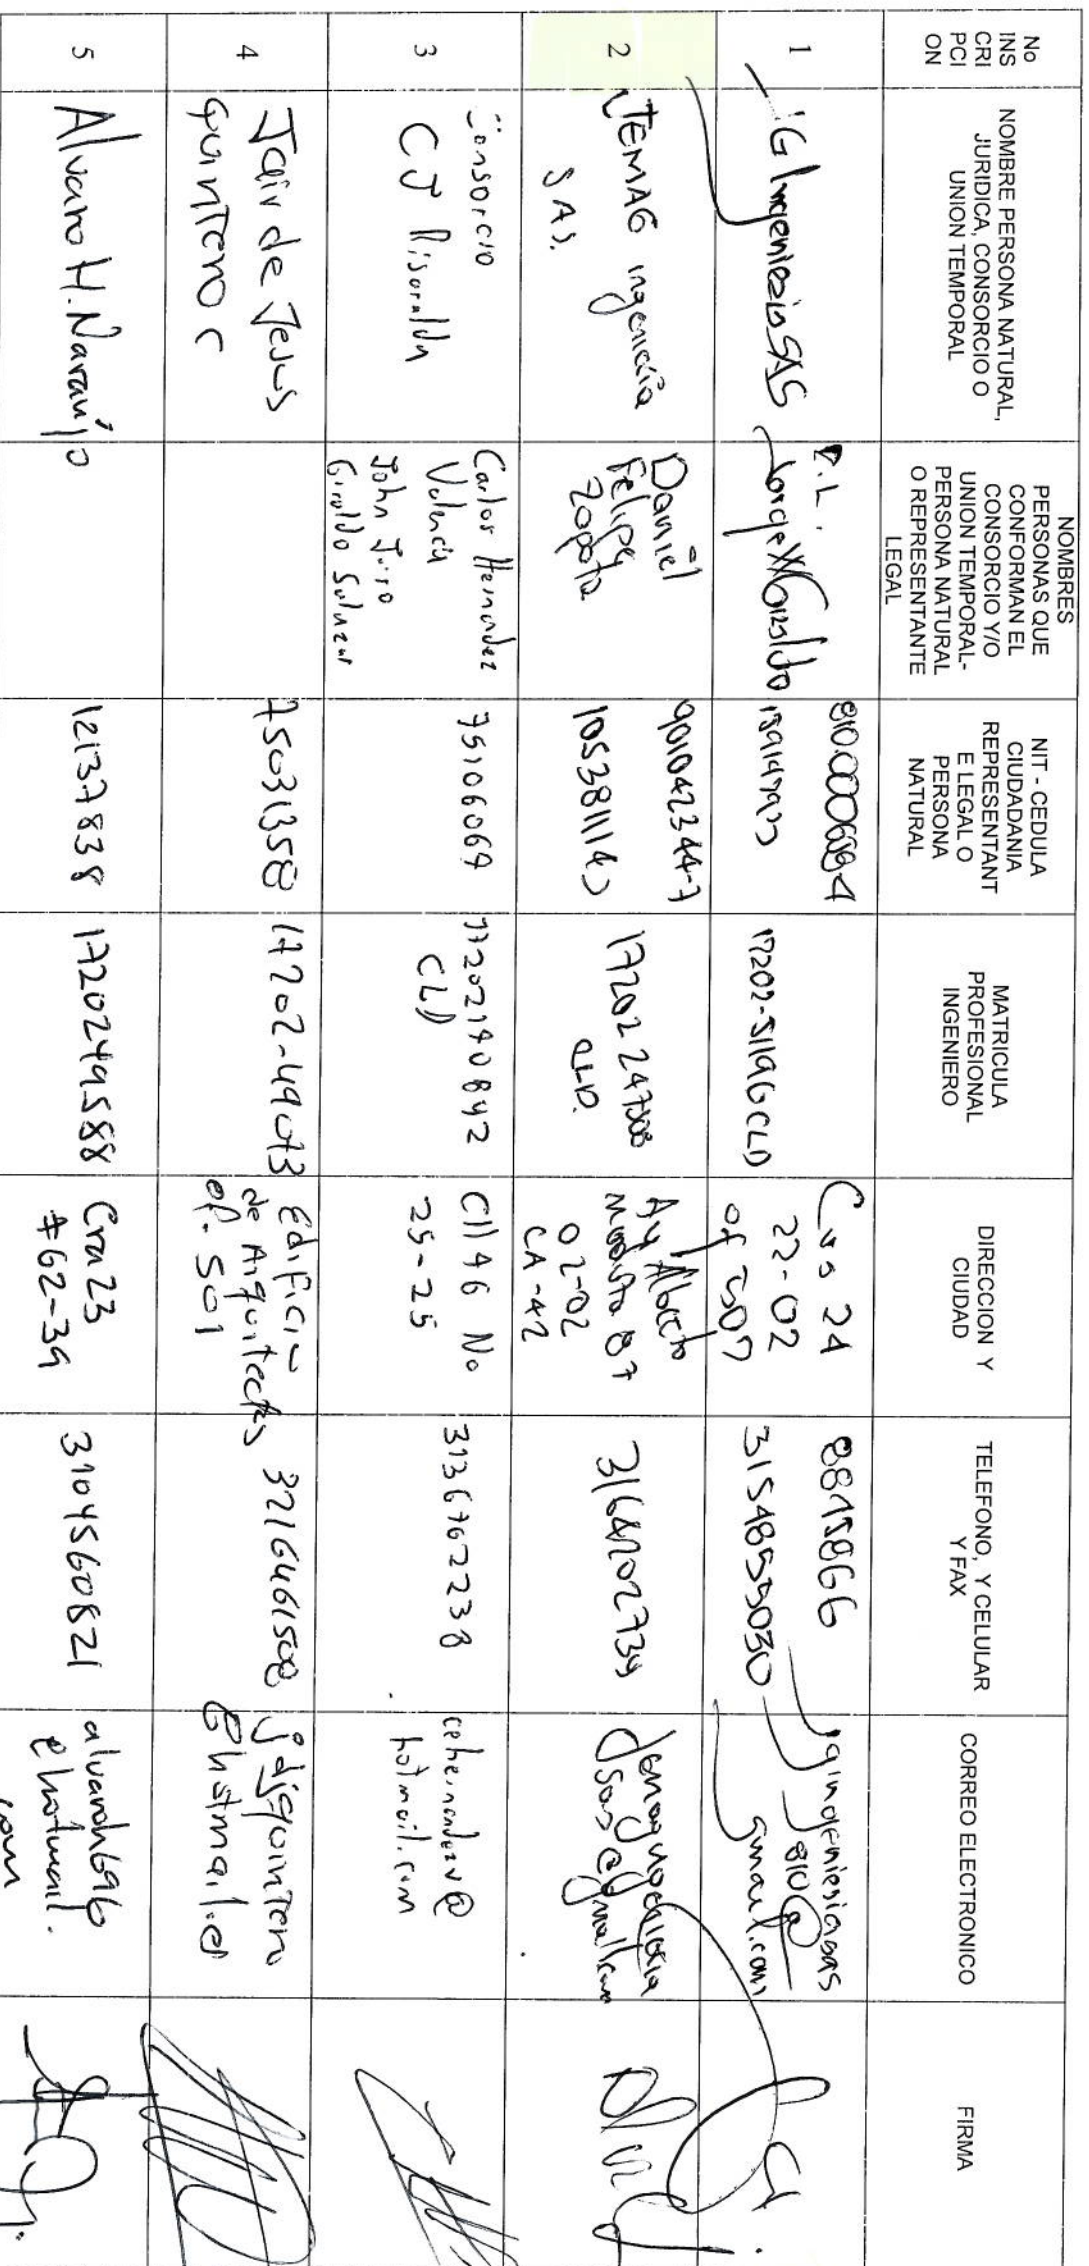 No
INS
CRI
PCI
ON
NOMBRE PERSONA NATURAL,
JURIDICA, CONSORCIO O
UNION TEMPORAL
NOMBRES
PERSONAS QUE
CONFORMAN EL
CONSORCIO Y/O
UNION TEMPORAL-
PERSONA NATURAL
O REPRESENTANTE
LEGAL
NIT - CEDULA
CIUDADANIA
REPRESENTANT
E LEGAL O
PERSONA
NATURAL
MATRICULA
PROFESIONAL
INGENIERO
DIRECCION Y
CIUDAD
TELEFONO, Y CELULAR
Y FAX
CORREO ELECTRONICO
FIRMA
1
R.L.
810.000
17202-51196CLD
Cra 24
22-02
of
8815866
3154855030
gmail.com
2
JEMAG ingenieria
SAS.
Daniel
Felipe
Zapata
901042344-7
1053811143
17202
CLD.
Av Alberto
02-02
CA-42
3164202739
3
Consorcio
CJ Risaralda
Carlos Hernandez
Valencia
John Jairo
Giraldo Salazar
75106069
17202190842
CLD
Cll 46 No
25-25
3136762238
cehernandezv@
hotmail.com
4
Jair de Jesus
Quintero C
75031358
17202-49073
Edificio
de Arquitectos
of. 501
3216461508
jdjquintero
5
Alvaro H. Naranjo
12137838
1720249588
Cra 23
#62-39
3104560821
alvaroh696
@hotmail.
com